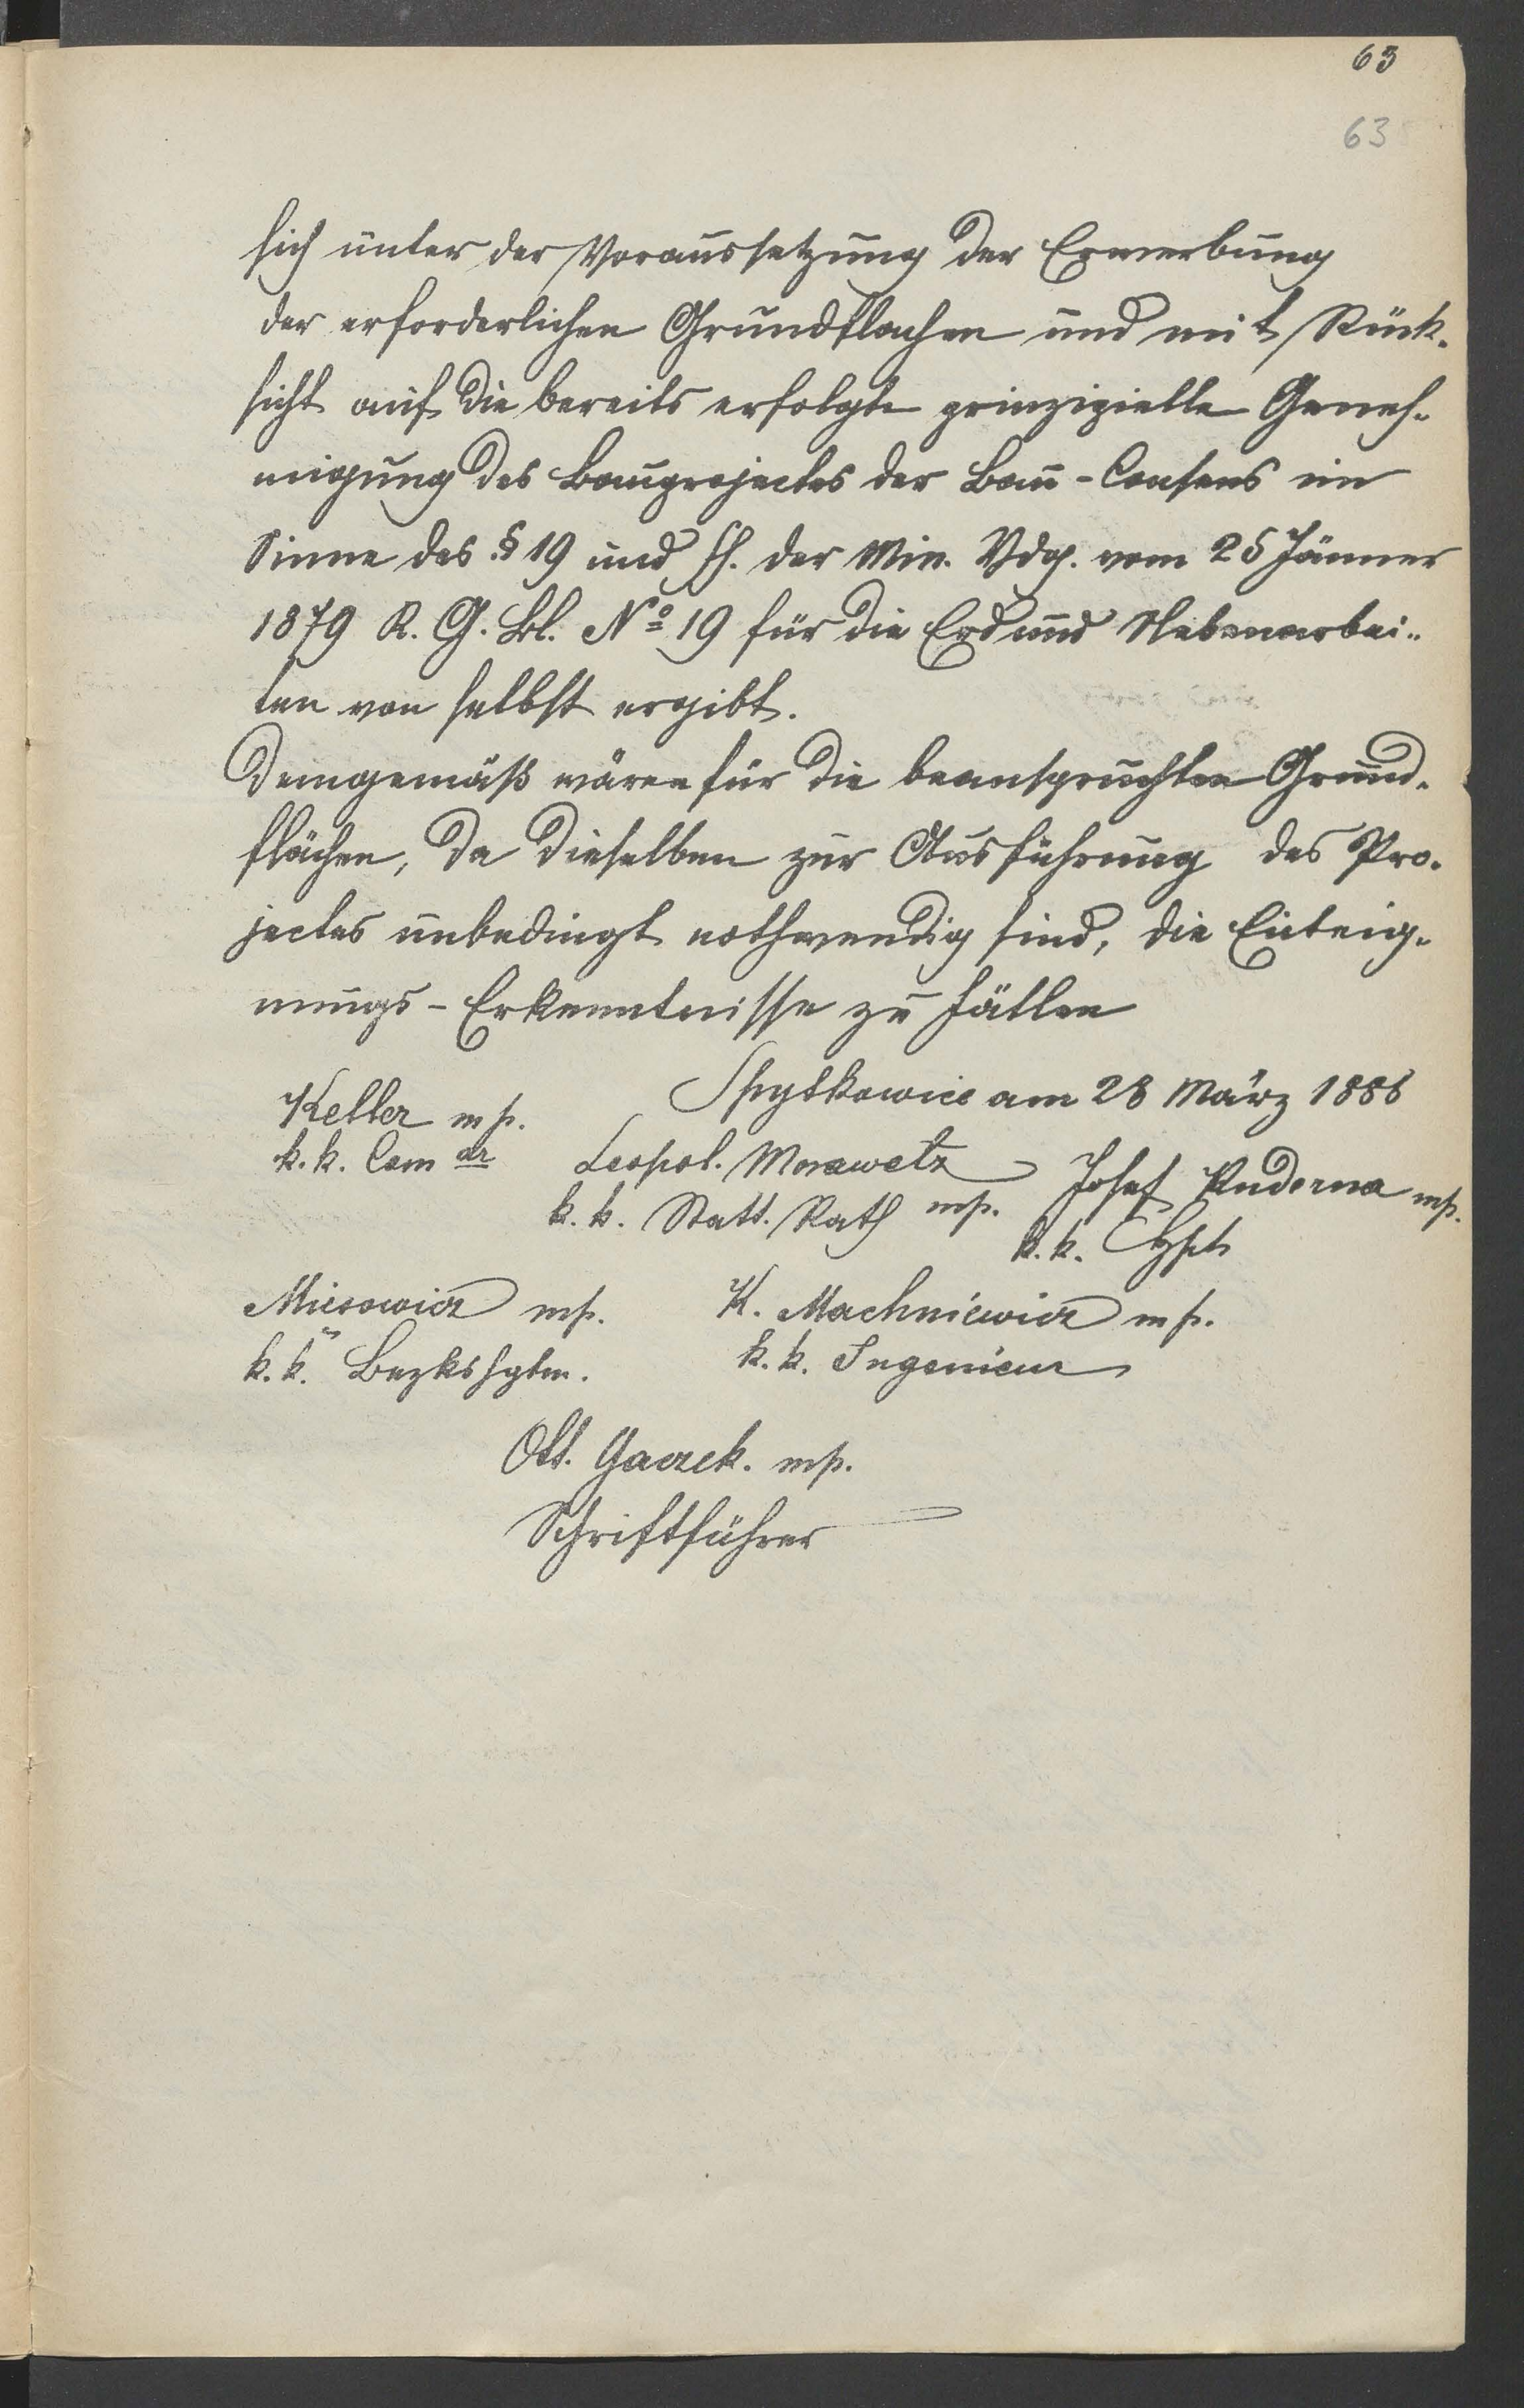 63
63
sich unter der Voraussetzung der Erwerbung
der erforderlichen Grundflachen und mit Rück-
sicht auf die bereits erfolgte prinzipielle Geneh-
migung des Bauprojectes der Bau-Consens im
Sinne des § 19 und ff. der Min. Vdg. vom 25 Jänner
1879 R. G. Bl. No 19 für die Erd und Nebenarbei-
ten von selbst ergibt.
Demgemäß wären für die beanspruchten Grund-
flächen, da dieselben zur Ausführung des Pro-
jectes unbedingt nothwendig sind, die Enteig-
nungs-Erkenntnisse zu fällen
Spytkowice am 28 März 1886
Keller mp.
k. k. Com dr
Leopol. Morawetz
k. k. Statt. Rath mp.
Josef Kuderna mp.
k. k. Hpt
Miesowicz mp.
k. k. Bezkshptm.
K. Machniewicz mp.
k. k. Ingenieur
Ott. Gaczek. mp.
Schriftführer